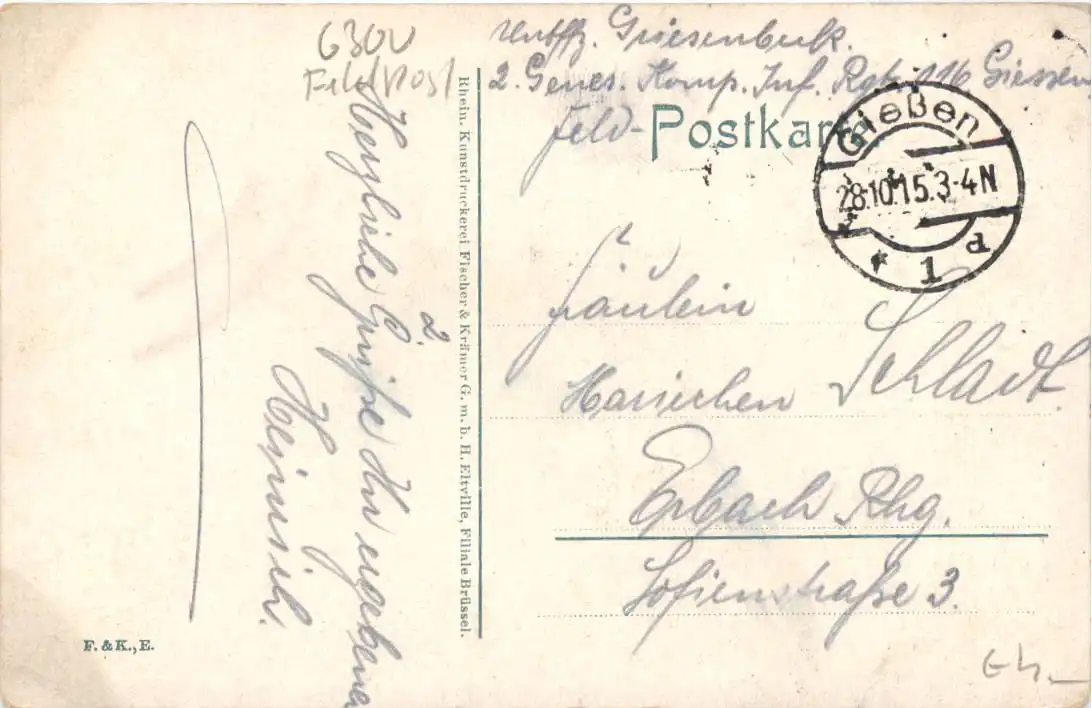 6300
Feldpost
Untffz. Griesenbeck.
2. Genes. Komp. Inf. Rgt. 116 Giessen
Feld-Postkarte
Gießen
28.10.15.3-4N
* 1 d
Fräulein
Hannchen Schladt.
Erbach Rhg.
Sofienstraße 3.
Herzliche Grüße Ihr ergebener
Heinrich.
2
Rhein. Kunstdruckerei Fischer & Krämer G. m. b. H. Eltville, Filiale Brüssel.
F. & K., E.